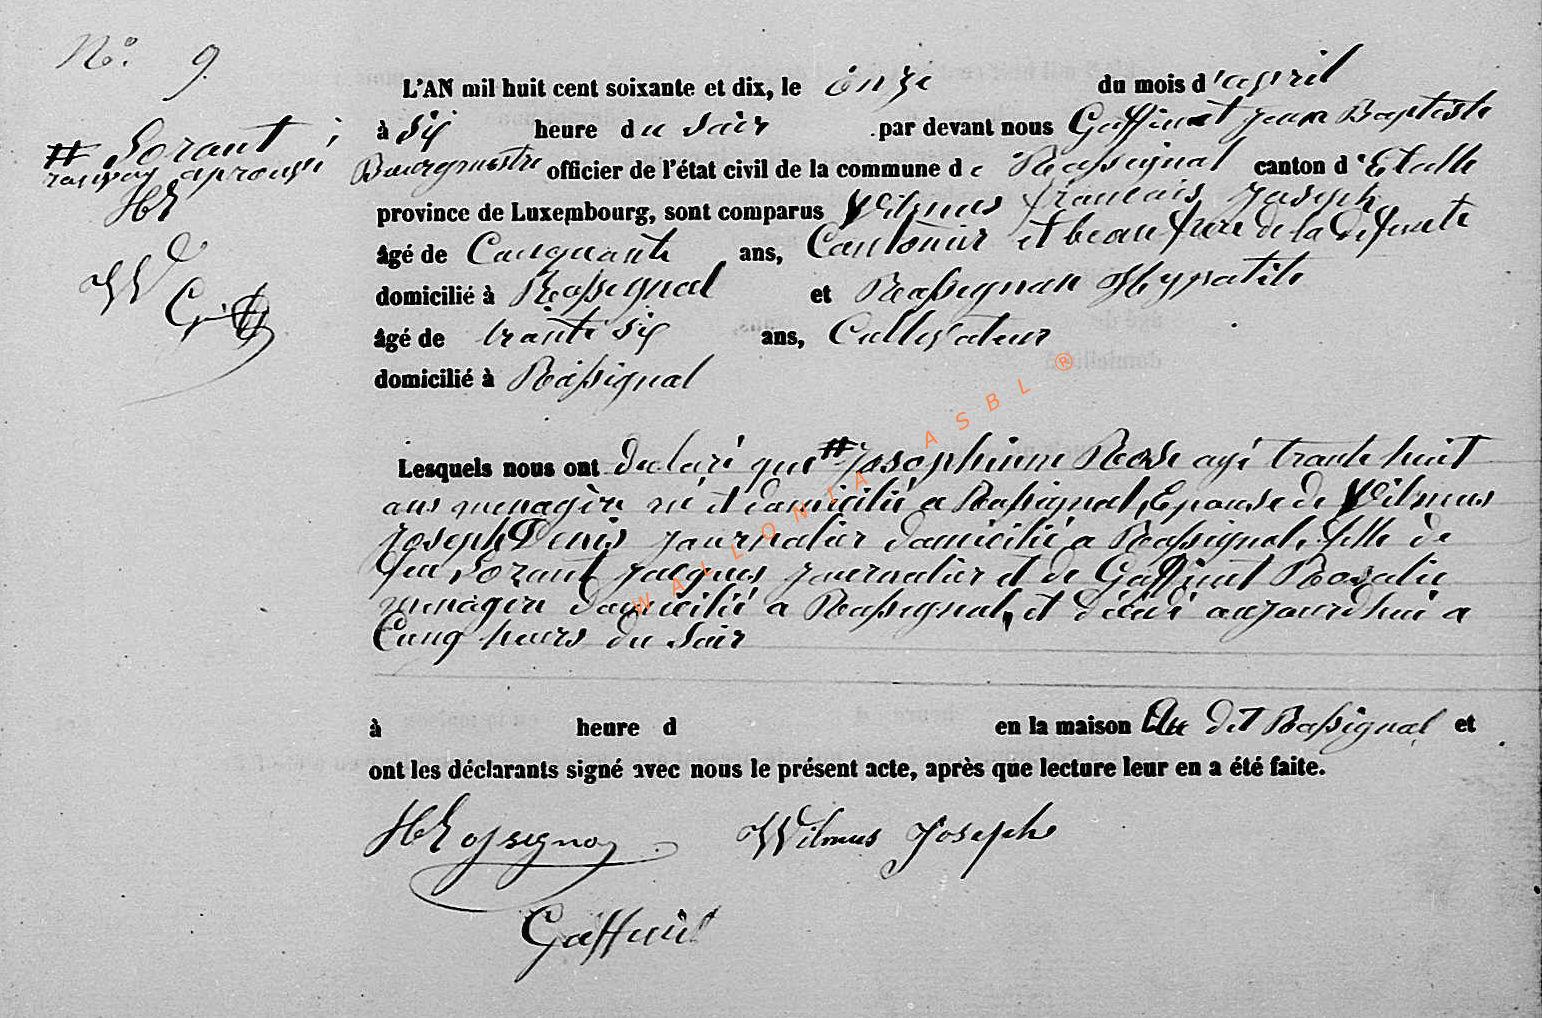 No. 9
L'AN mil huit cent soixante et dix, le onze du mois d'april
à six heure du Soir par devant nous Gaffinet Jean Baptiste
# Lorant
renvoy aprouvé
HR
W
G
Bourgmestre officier de l'état civil de la commune de Rossignol canton d'Etalle
province de Luxembourg, sont comparus Wilmus francais Joseph
âgé de Cinquante ans, Cantonier et beau frère de la defunte
domicilié à Rossignol et Rossignon Hyppolite
âgé de trante six ans, Cultivateur
domicilié à Rossignol
Lesquels nous ont declaré que # Josephinne Rose agé trante huit
ans menagère né et domicilié a Rossignol, Epouse de Wilmus
Joseph Denis journalier domicilié a Rossignol, fille de
feu Lorant Jacques journalier et de Gaffinet Rosalie
menagère domicilié a Rossignol, et décédé aujourdhui a
Cinq heurs du Soir
à heure d en la maison du dit Rossignol et
ont les déclarants signé avec nous le présent acte, après que lecture leur en a été faite.
HRossignon Wilmus Joseph
Gaffinet
WALLONIA ASBL ®